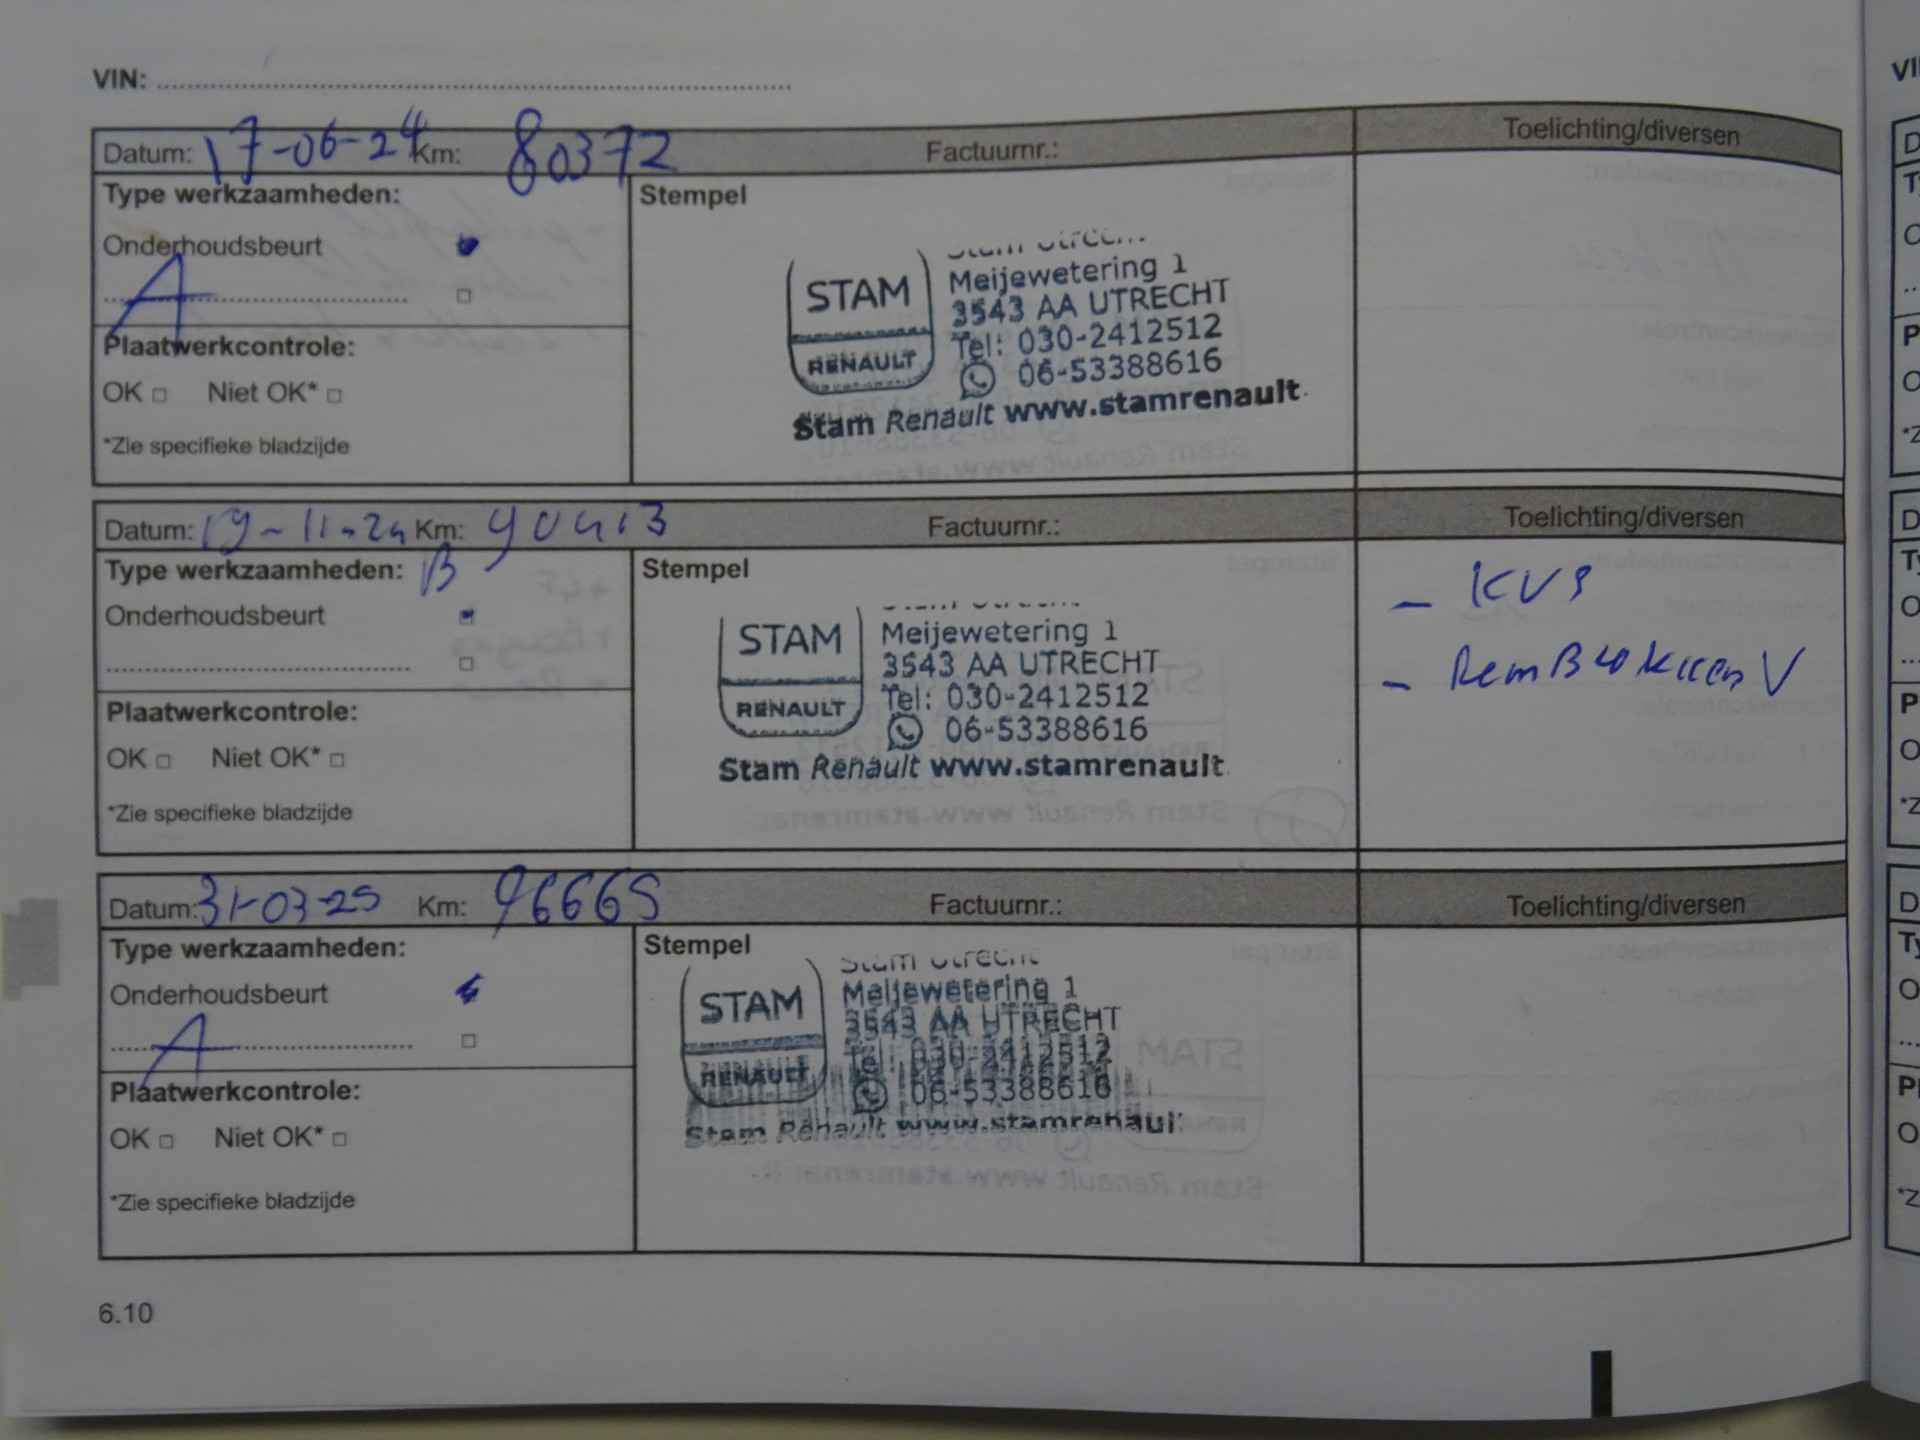 VIN:
Datum: 17-06-24 Km: 80372 Factuurnr.: Toelichting/diversen
Type werkzaamheden: Stempel
Onderhoudsbeurt
A
Plaatwerkcontrole:
OK □ Niet OK* □
*Zie specifieke bladzijde
STAM
RENAULT
Stam Utrecht
Meijewetering 1
3543 AA UTRECHT
Tel: 030-2412512
06-53388616
Stam Renault www.stamrenault.
Datum: 19-11-24 Km: 90413 Factuurnr.: Toelichting/diversen
Type werkzaamheden: B Stempel
Onderhoudsbeurt
Plaatwerkcontrole:
OK □ Niet OK* □
*Zie specifieke bladzijde
STAM
RENAULT
Meijewetering 1
3543 AA UTRECHT
Tel: 030-2412512
06-53388616
Stam Renault www.stamrenault.
- KVS
- RemBlokken V
Datum: 31-03-25 Km: 96665 Factuurnr.: Toelichting/diversen
Type werkzaamheden: Stempel
Onderhoudsbeurt
A
Plaatwerkcontrole:
OK □ Niet OK* □
*Zie specifieke bladzijde
STAM
RENAULT
Stam Utrecht
Meijewetering 1
3543 AA UTRECHT
Tel: 030-2412512
06-53388616
Stam Renault www.stamrenaul
6.10